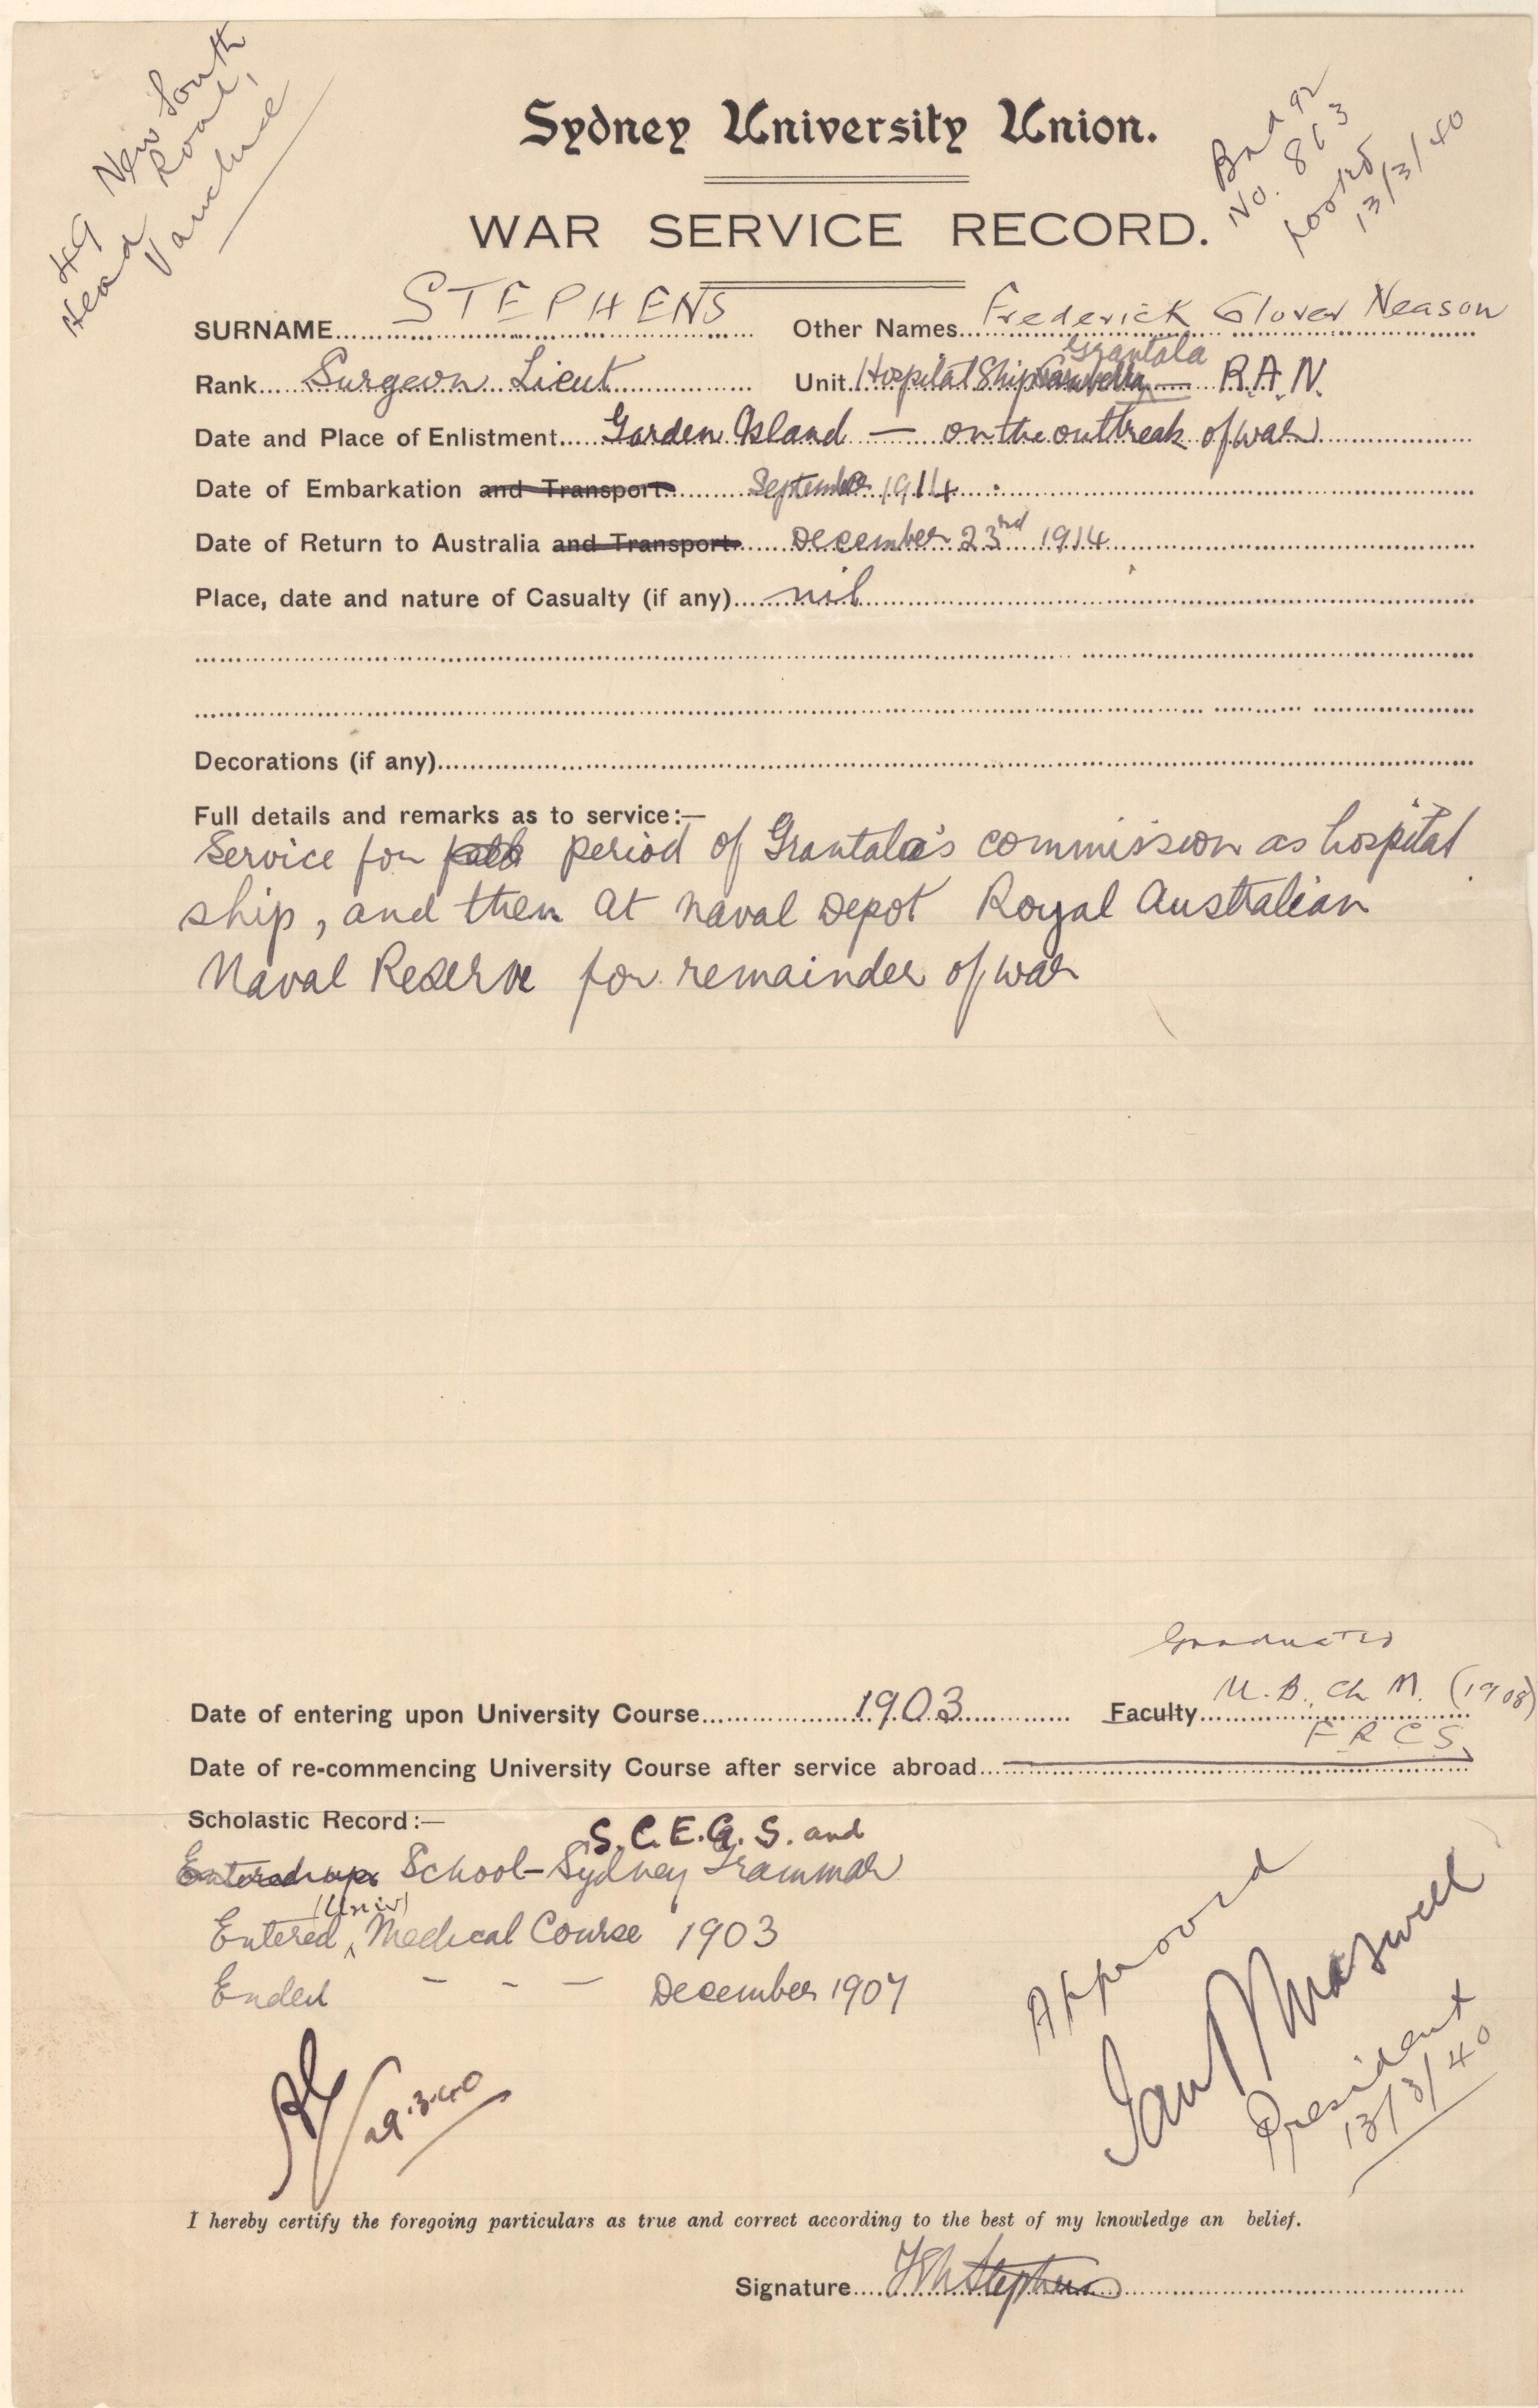 49 New South
Head Road,
Vaucluse
Sydney University Union.
No. 863
13/3/40
WAR SERVICE RECORD.
SURNAME STEPHENS Other Names Frederick Glover Neason
Grantala
Rank Surgeon Lieut Unit Hospital Ship R.A.N.
Date and Place of Enlistment Garden Island — on the outbreak of war
Date of Embarkation and Transport September 1914
Date of Return to Australia and Transport December 23rd 1914
Place, date and nature of Casualty (if any) nil
Decorations (if any)
Full details and remarks as to service:—
Service for period of Grantala's commission as hospital
ship, and then at Naval Depot Royal Australian
Naval Reserve for remainder of war
Graduated
Date of entering upon University Course 1903 Faculty M.B., Ch M. (1908)
F R C S,
Date of re-commencing University Course after service abroad
Scholastic Record:—
S.C.E.G.S. and
School - Sydney Grammar
(Univ)
Entered Medical Course 1903
Ended - - - December 1907
Approved
Ian Maxwell
President
13/3/40
29.3.40
I hereby certify the foregoing particulars as true and correct according to the best of my knowledge an belief.
Signature FGN Stephens